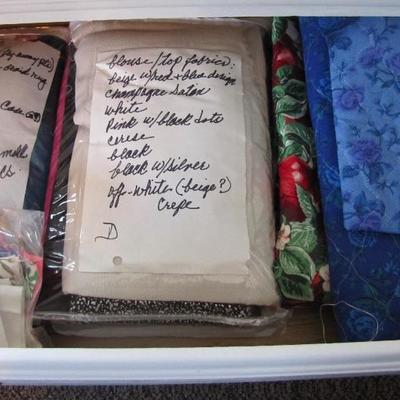 blouse/top fabrics:
beige w/red + blue design
champagne satin
white
Pink w/black dots
cerise
black
black w/silver
off-white (beige?)
Crepe
D
Case